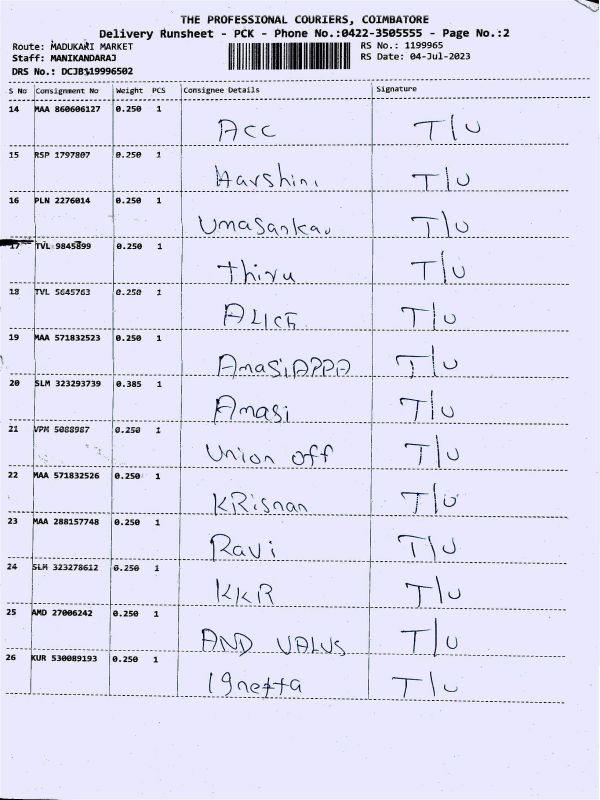 THE PROFESSIONAL COURIERS, COIMBATORE
Delivery Runsheet - PCK - Phone No.:0422-3505555 - Page No.:2
Route: MADUKARI MARKET RS No.: 1199965
Staff: MANIKANDARAJ RS Date: 04-Jul-2023
DRS No.: DCJB119996502
S No Consignment No Weight PCS Consignee Details Signature
14 MAA 860606127 0.250 1 ACC T/U
15 RSP 1797807 0.250 1 Harshini T/U
16 PLN 2276014 0.250 1 Umasankar T/U
17 TVL 9845899 0.250 1 thiru T/U
18 TVL 5645763 0.250 1 ALICE T/U
19 MAA 571832523 0.250 1 AmasiAPPA T/U
20 SLM 323293739 0.385 1 Amasi T/U
21 VPM 5088987 0.250 1 Union off T/U
22 MAA 571832526 0.250 1 KRisnan T/U
23 MAA 288157748 0.250 1 Ravi T/U
24 SLM 323278612 0.250 1 KKR T/U
25 AMD 27006242 0.250 1 AND VALUS T/U
26 KUR 530089193 0.250 1 T/U